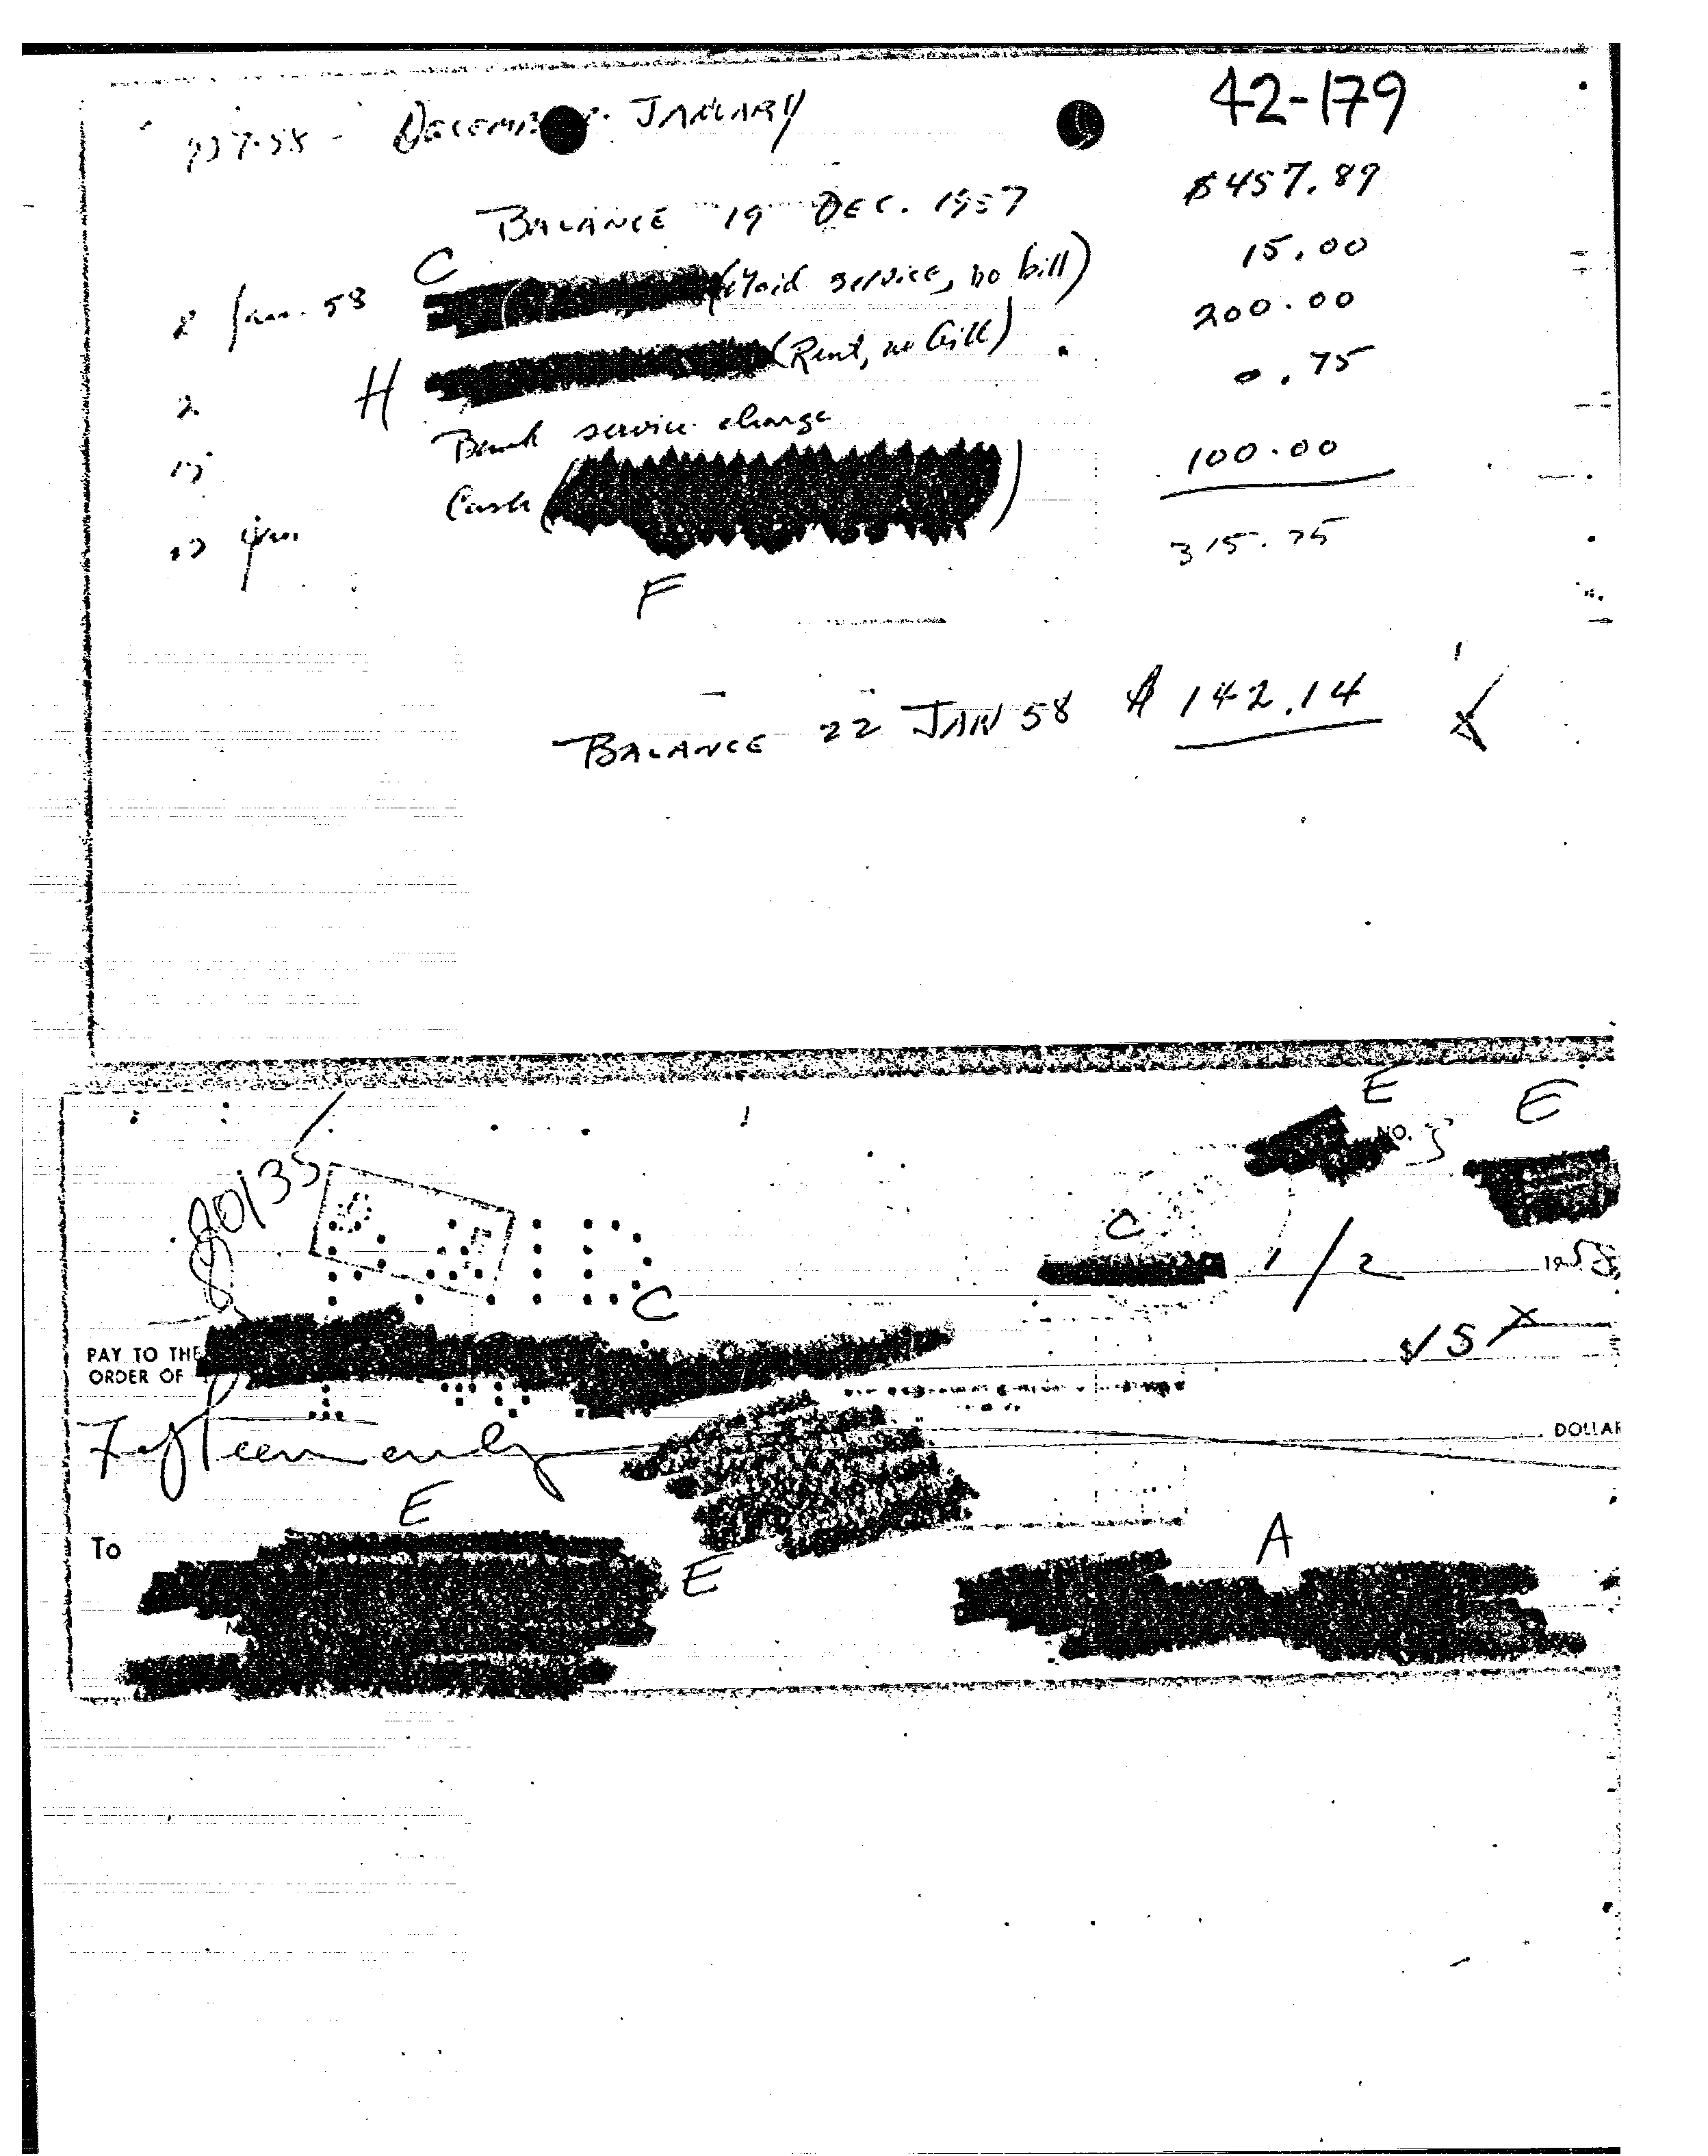 42-179
DECEMBER JANUARY
BALANCE 19 DEC. 1957 $457.89
C
2 Jan. 58 (Maid service, no bill) 15.00
2 H (Rent, no bill) 200.00
15 Bank service charge 0.75
Jan Cash ( ) 100.00
315.75
F
BALANCE 22 JAN 58 $142.14
E E
NO. 5
80135
C
1/2 1958
C
PAY TO THE
ORDER OF $15
Fifteen only DOLLAR
E
To
E
A